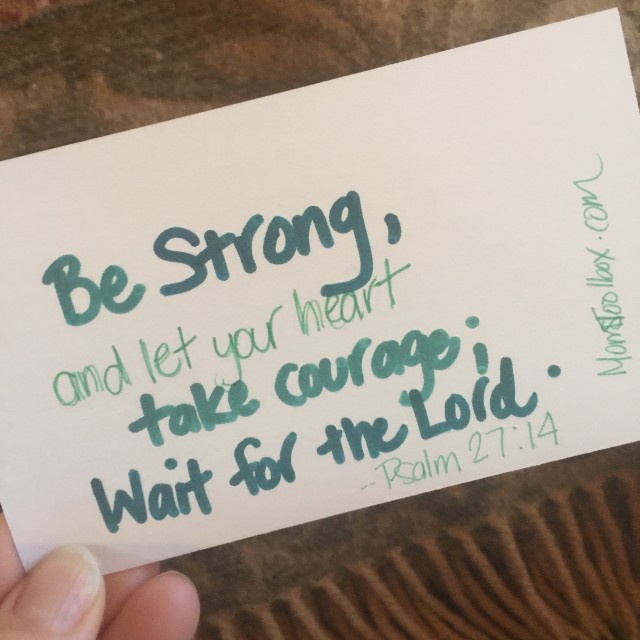 Be Strong,
and let your heart
take courage;
Wait for the Lord.
- Psalm 27:14
MomsToolbox.com